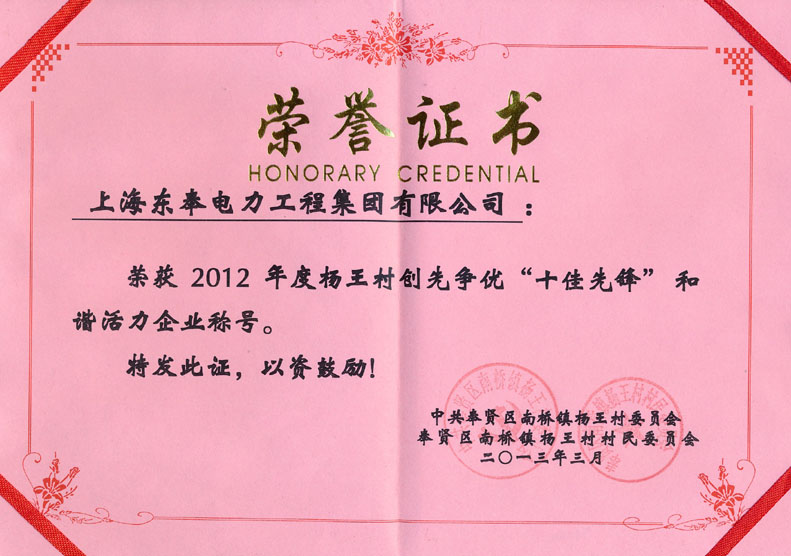 荣誉证书
HONORARY CREDENTIAL
上海东奉电力工程集团有限公司：
荣获 2012 年度杨王村创先争优“十佳先锋”和
谐活力企业称号。
特发此证，以资鼓励！
中共奉贤区南桥镇杨王村委员会
奉贤区南桥镇杨王村村民委员会
二〇一三年三月